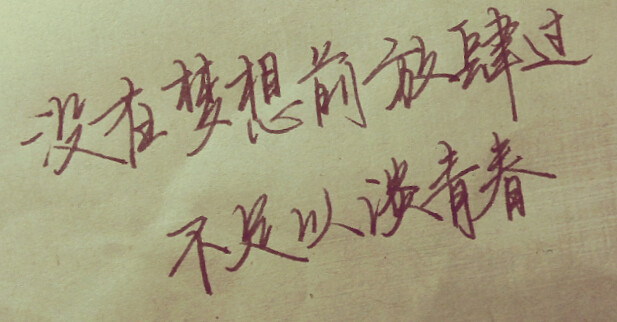 没在梦想前放肆过
不足以谈青春